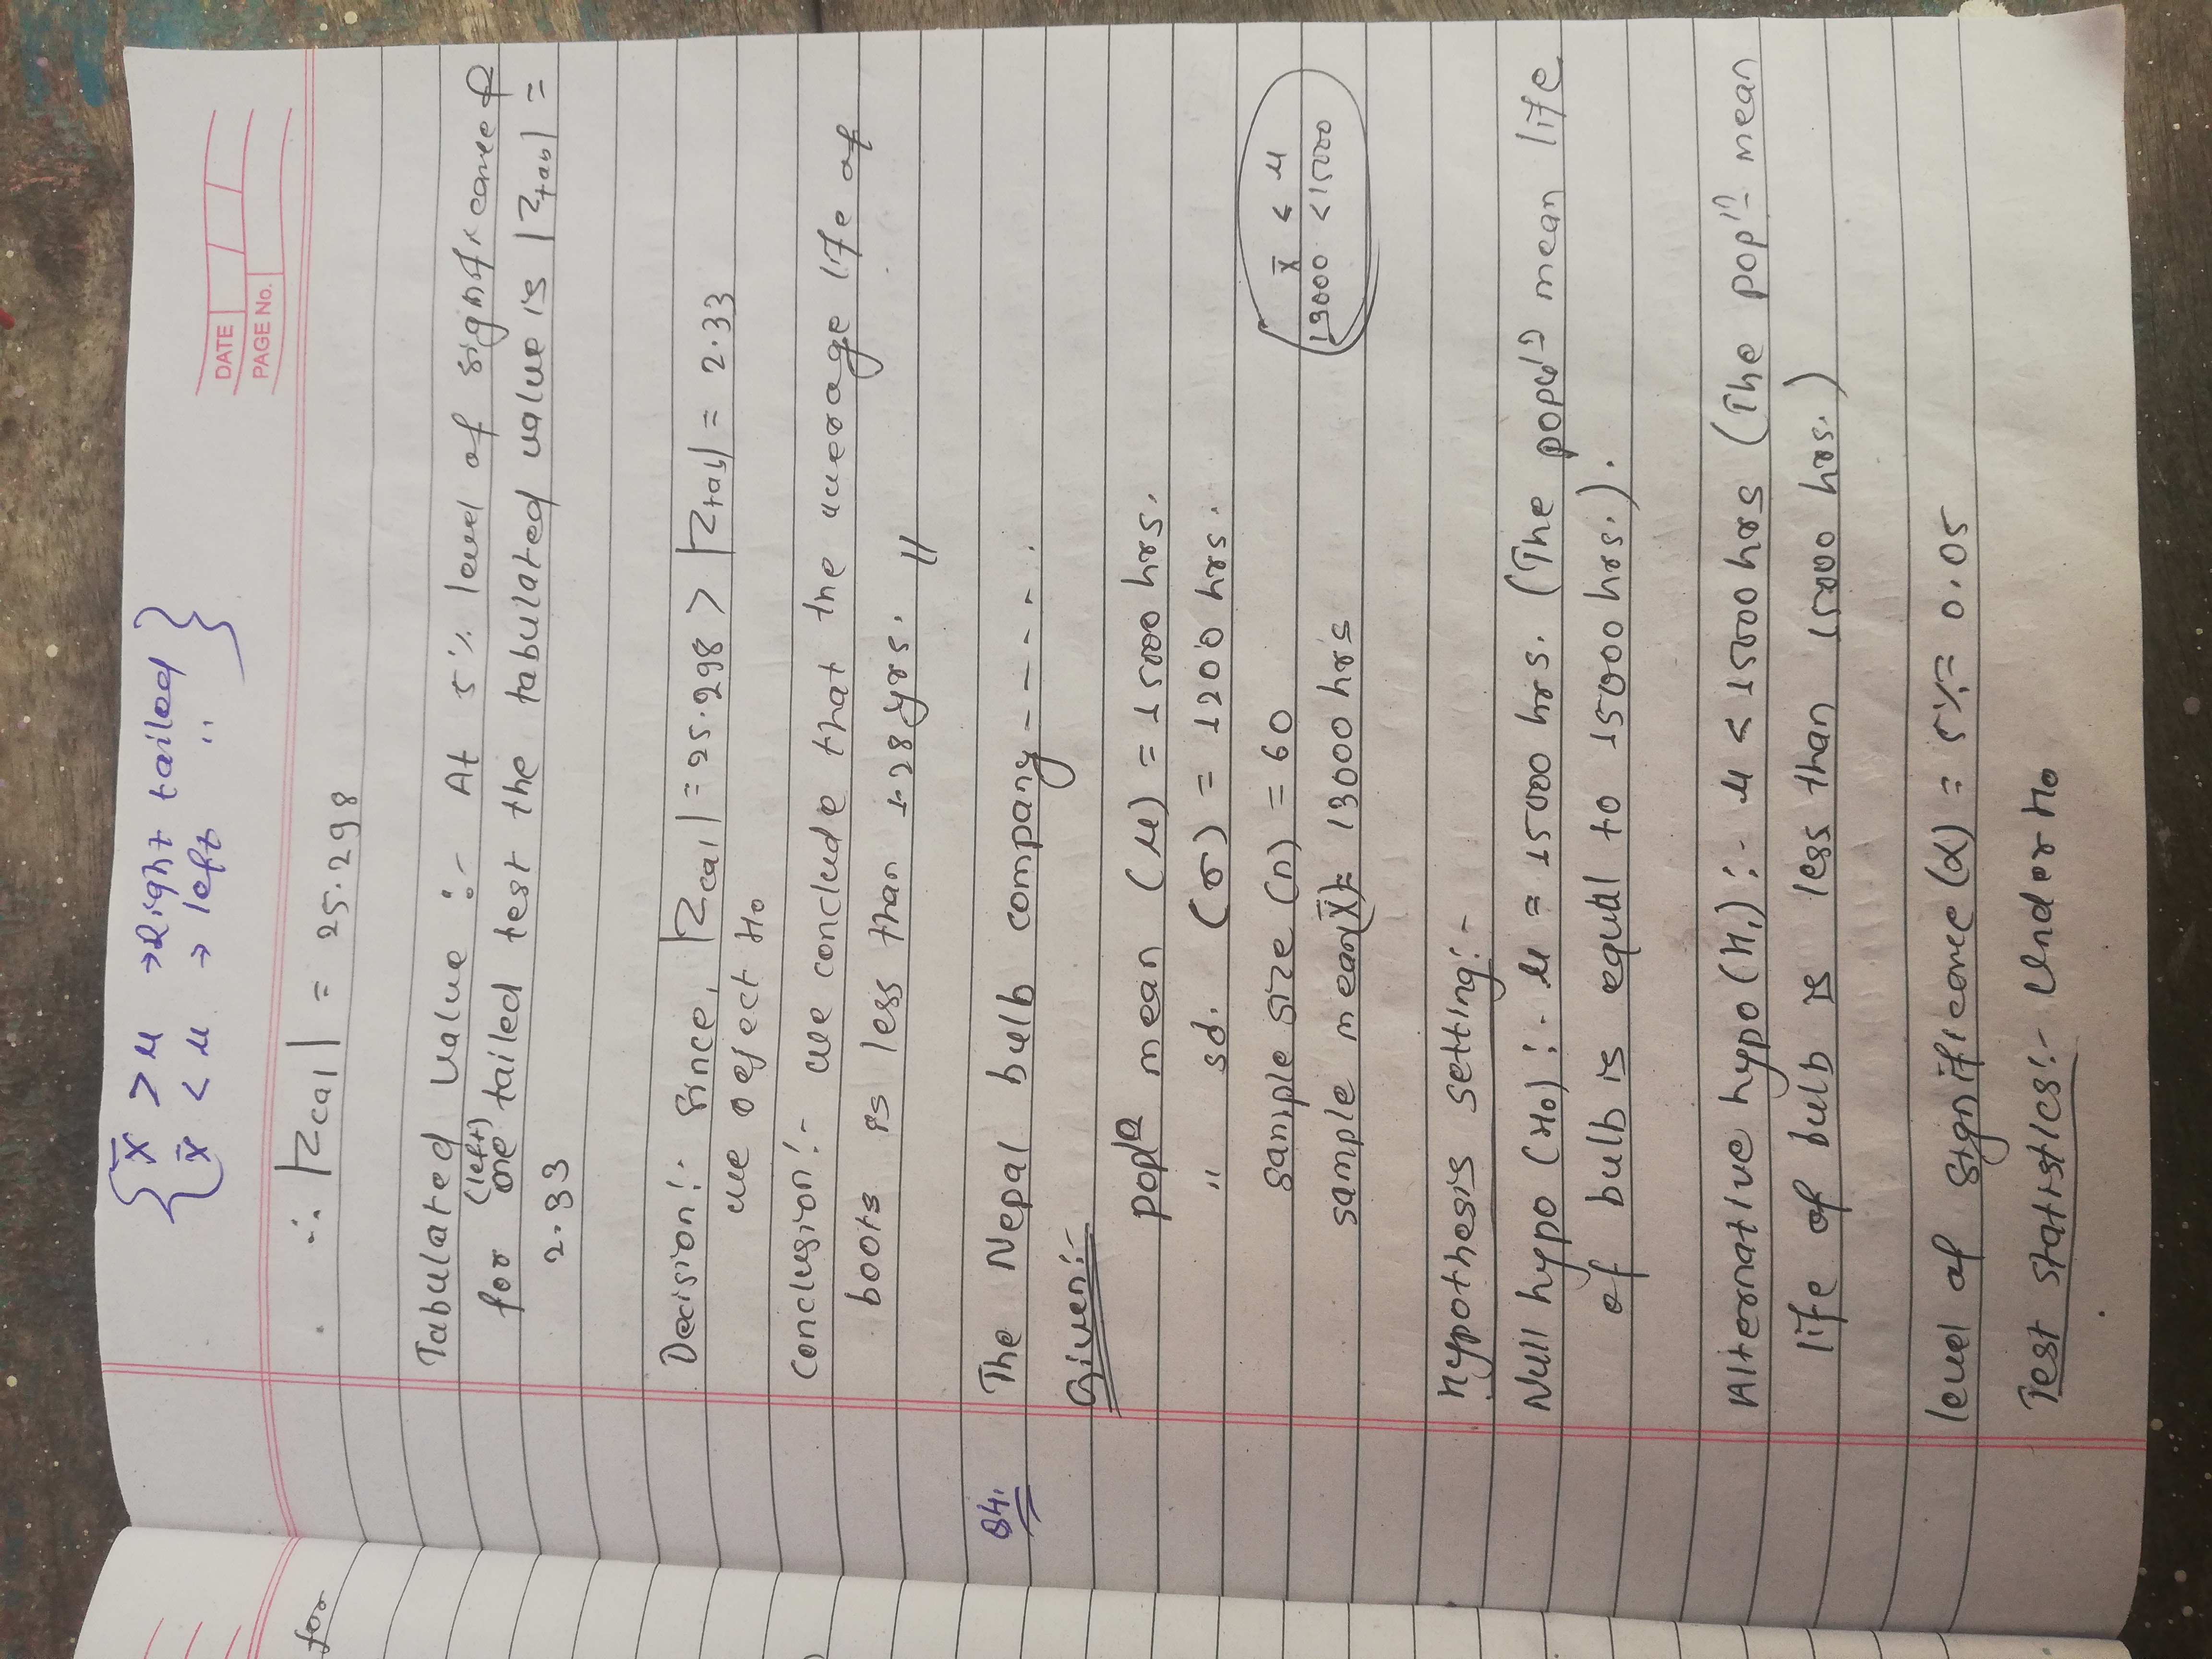 { x̄ > μ → Right tailed }
{ x̄ < μ → left " }
DATE
PAGE No.
for
∴ |Zcal| = 25.298
Tabulated value :- At 5% level of significance &
(left)
for one tailed test the tabulated value is |Ztab| =
2.33
Decision:- Since, |Zcal| = 25.298 > |Ztab| = 2.33
we reject H₀
Conclusion:- we conclude that the average life of
boots is less than 1.28 yrs. //
Q4. The Nepal bulb company ------
Given:-
popⁿ mean (μ) = 15000 hrs.
" sd. (σ) = 1200 hrs.
sample size (n) = 60
x̄ < μ
sample mean(x̄)= 13000 hrs
13000 < 15000
Hypothesis setting:-
Null hypo (H₀) :- μ = 15000 hrs. (The populⁿ mean life
of bulb is equal to 15000 hrs.).
Alternative hypo (H₁) :- μ < 15000 hrs (The popⁿ mean
life of bulb is less than 15000 hrs.)
level of significance (α) = 5% = 0.05
Test statistics:- Under H₀